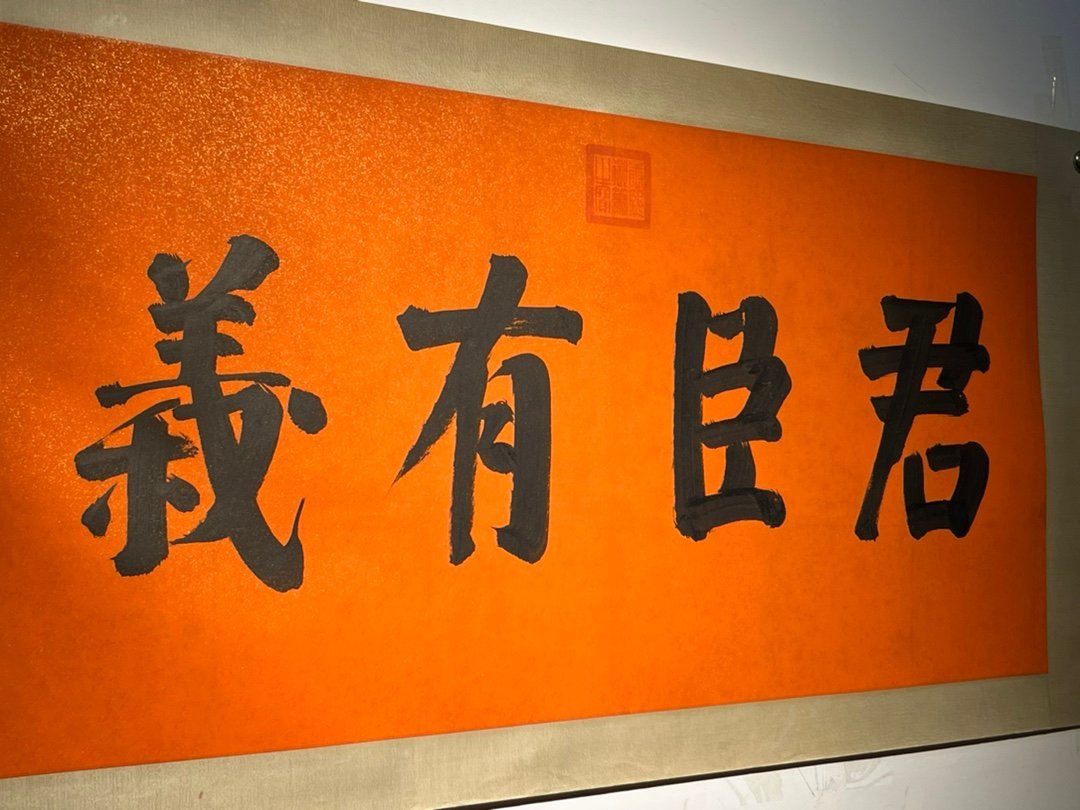 君臣有義